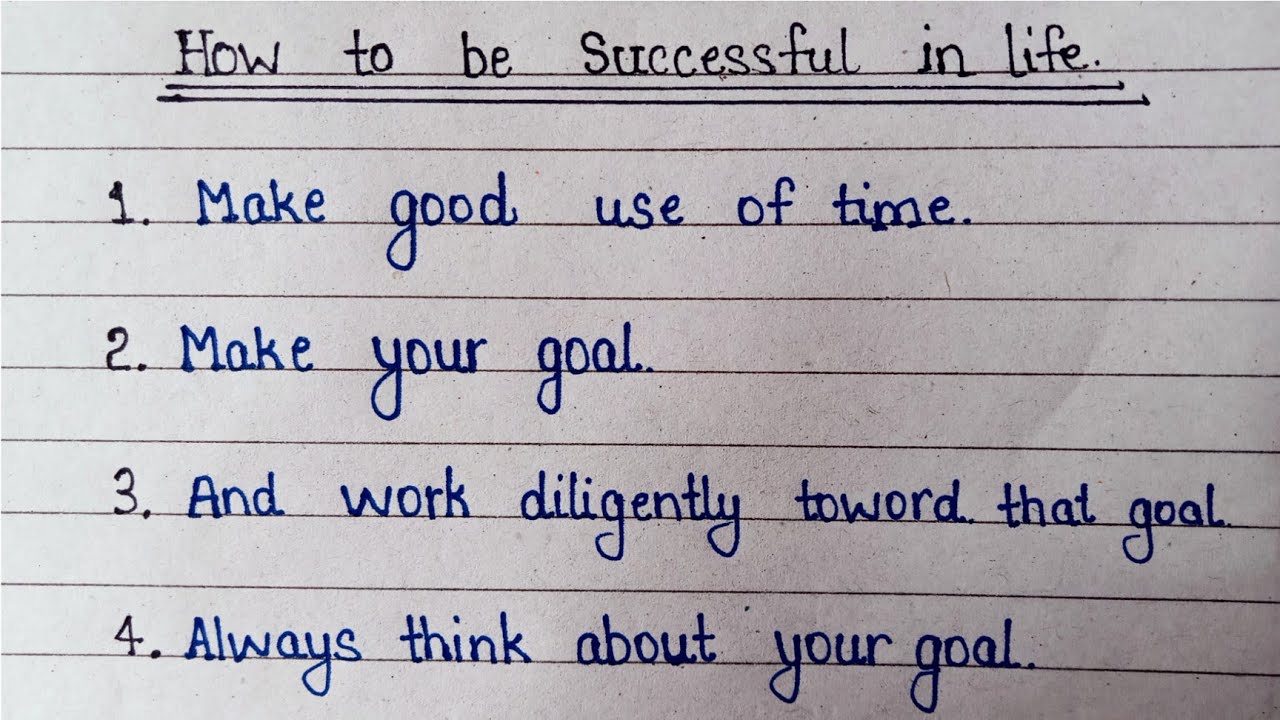 How to be Successful in life.
1. Make good use of time.
2. Make your goal.
3. And work diligently toword that goal.
4. Always think about your goal.